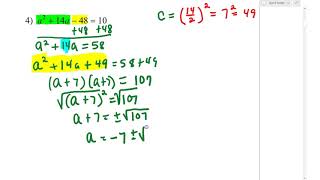 4) a² + 14a − 48 = 10
+48 +48
a² + 14a = 58
a² + 14a + 49 = 58 + 49
(a + 7)(a + 7) = 107
√(a + 7)² = √107
a + 7 = ±√107
a = −7 ±√
c = (14/2)² = 7² = 49